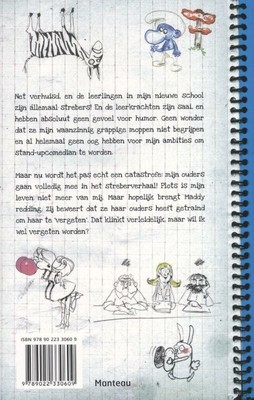 Net verhuisd, en de leerlingen in mijn nieuwe school
zijn állemaal strebers! En de leerkrachten zijn saai en
hebben absoluut geen gevoel voor humor. Geen wonder
dat ze mijn waanzinnig grappige moppen niet begrijpen
en al helemaal geen oog hebben voor mijn ambities om
stand-upcomedian te worden.
Maar nu wordt het pas echt een catastrofe: mijn ouders
gaan volledig mee in het streberverhaal! Plots is mijn
leven niet meer van mij. Maar hopelijk brengt Maddy
redding. Zij beweert dat ze haar ouders heeft getraind
om haar te 'vergeten'. Dat klinkt verleidelijk, maar wil ik
wel vergeten worden?
ISBN 978 90 223 3060 9
9 789022 330609
Manteau